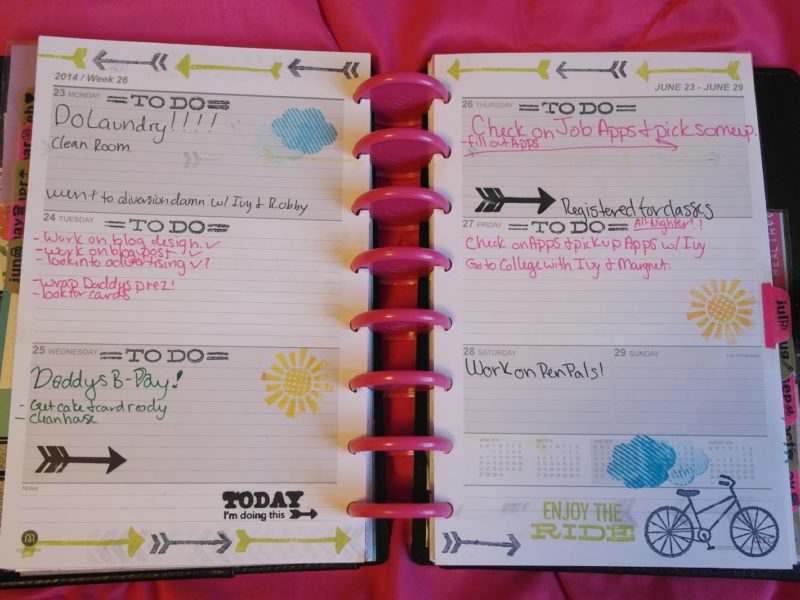 2014 / Week 26
23 MONDAY
TO DO
Do Laundry!!!!
Clean Room
went to diversion damn w/ Ivy & Robby
24 TUESDAY
TO DO
- Work on blog design ✓
- work on blog post ✓
- look into advertising ✓?
- wrap Daddys prez!
- look for cards
25 WEDNESDAY
TO DO
Daddys B-Day!
- Get cake & card ready
- clean house
Notes
TODAY
I'm doing this
JUNE 23 - JUNE 29
26 THURSDAY
TO DO
Check on Job Apps & pick some up.
- fill out Apps
Registered for classes
27 FRIDAY
TO DO
All-Nighter!!
Check on Apps & pick up Apps w/ Ivy
Go to College with Ivy & Margret.
28 SATURDAY
29 SUNDAY
Work on Pen Pals!
ENJOY THE
RIDE
jul